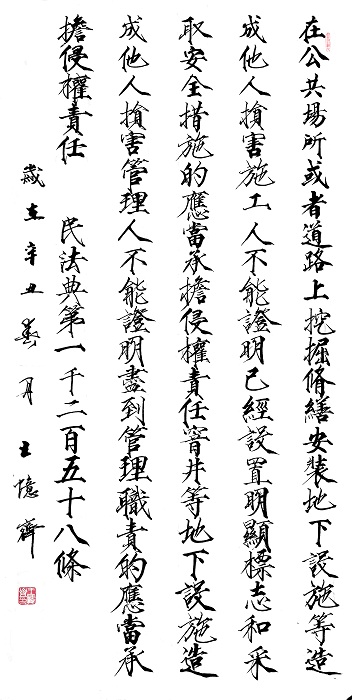 在公共場所或者道路上挖掘脩繕安裝地下設施等造
成他人損害施工人不能證明已經設置明顯標志和采
取安全措施的應當承擔侵權責任窨井等地下設施造
成他人損害管理人不能證明盡到管理職責的應當承
擔侵權責任 民法典第一千二百五十八條
歲在辛丑春月王憶齊